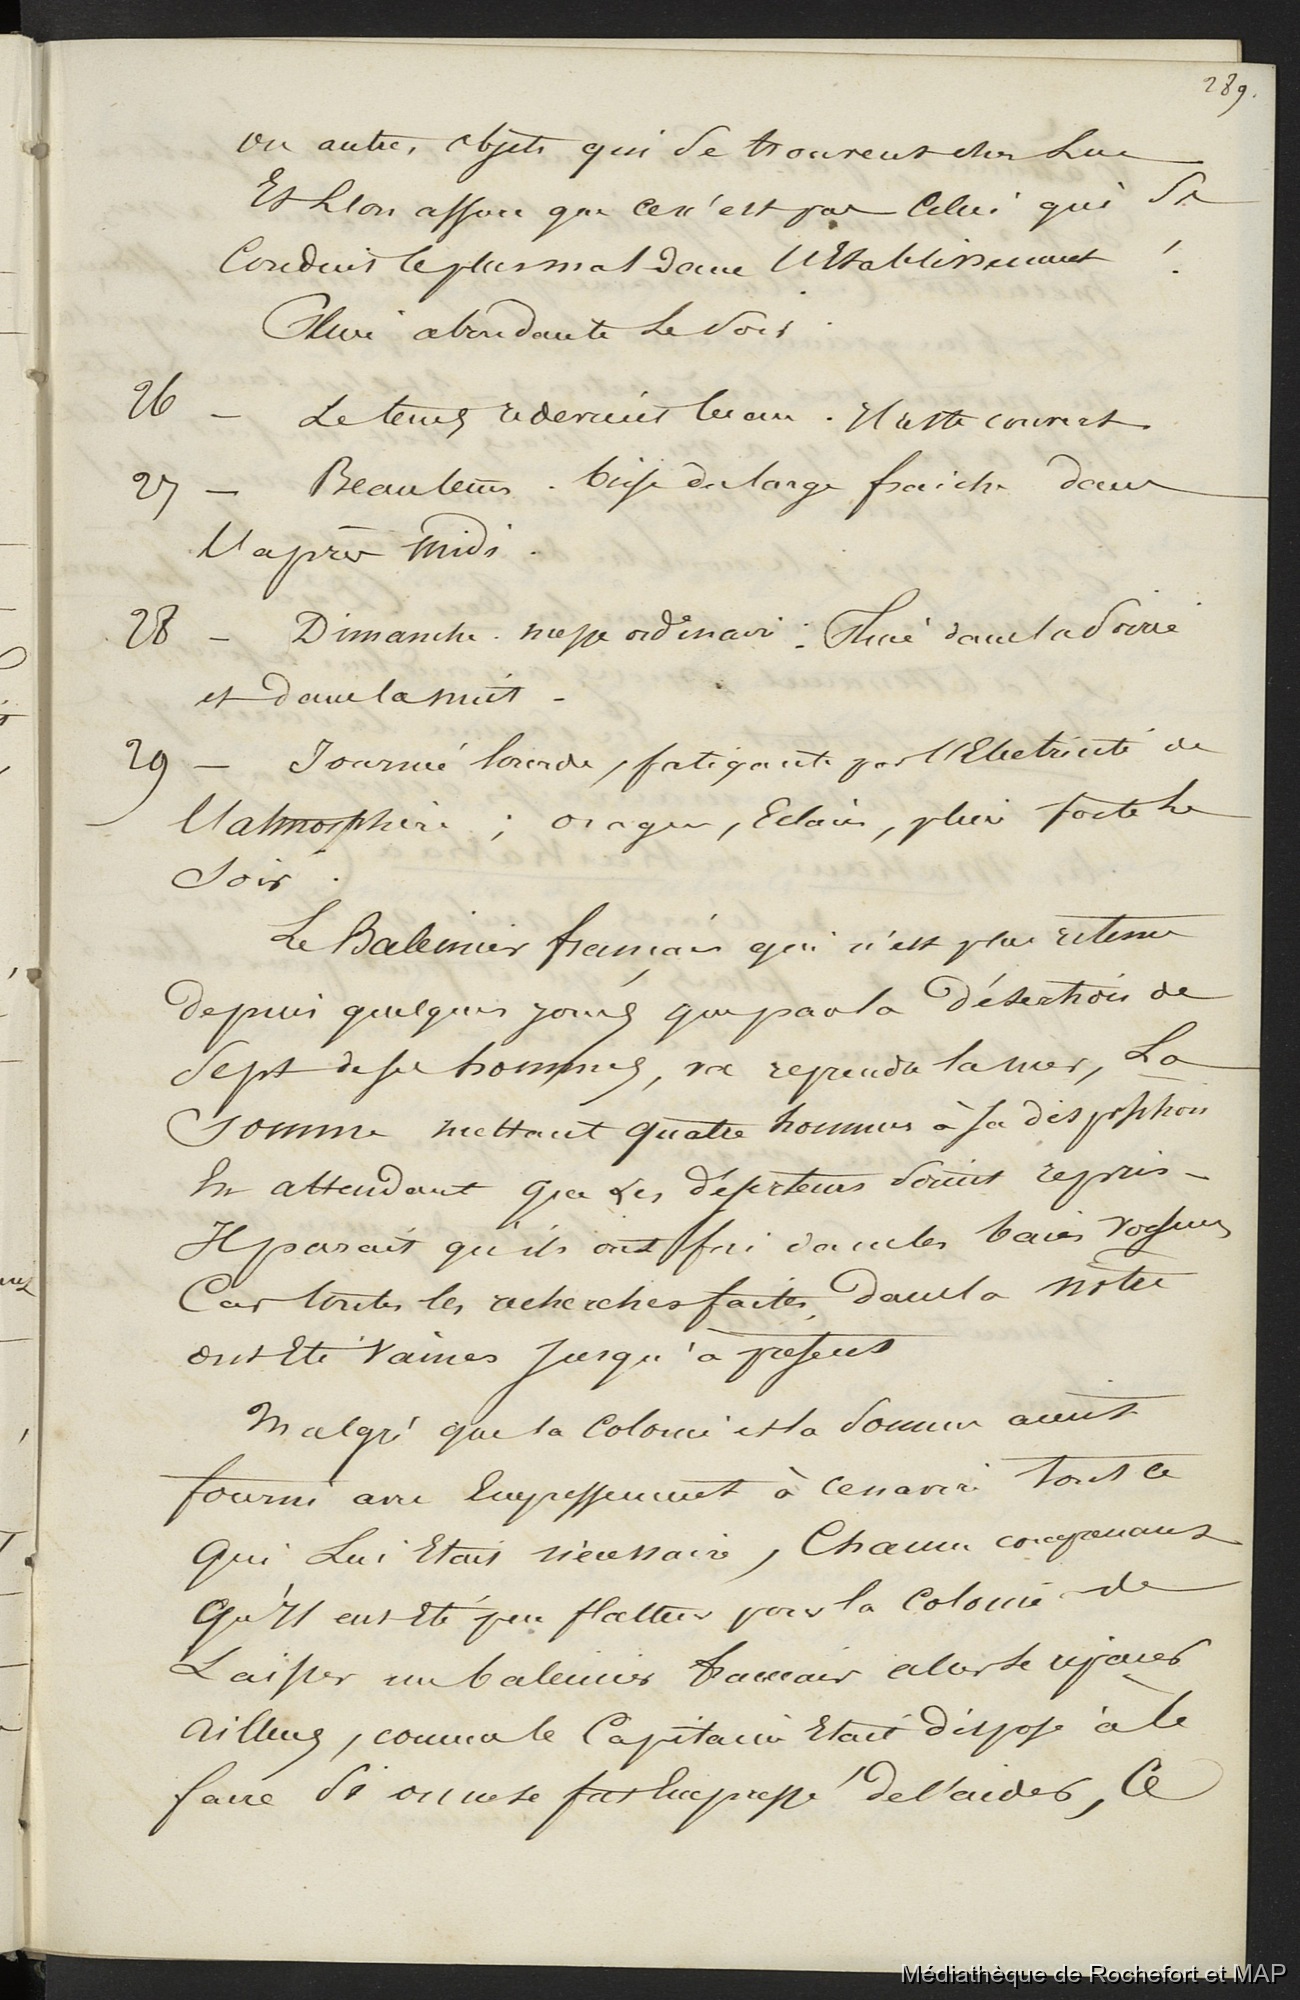 289.
ou autres objets qui se trouvent chez Lui
Et L'on assure que ce n'est pas Celui qui se
Conduit le plus mal dans l'Etablissement !
Pluie abondante Le Soir.
26 - Le tems redevient beau. Il reste couvert.
27 - Beau tems. brise du large fraiche dans
l'après midi.
28 - Dimanche. messe ordinaire. Pluie dans la Soirée
et dans la nuit -
29 - Journée lourde, fatigante par l'Electricité de
l'atmosphère ; orages, Eclairs, pluie forte Le
Soir.
Le Baleinier français qui n'est plus retenu
depuis quelques jours que par la désertion de
Sept de ses hommes, va reprendre la mer, La
Somme mettant quatre hommes à sa disposition
En attendant que Les déserteurs soient repris -
Il parait qu'ils ont fui dans les baies voisines
Car toutes les recherches faites, dans la nôtre
ont Eté vaines jusqu'à présent
Malgré que la Colonie et la Somme aient
fourni avec Empressement à ce navire tout ce
qui Lui Etait nécessaire, Chacun comprenant
qu'Il eut Eté peu flatteur pour la Colonie de
Laisser un baleinier français aller se réparer
ailleurs, comme le Capitaine Etait disposé à le
faire Si on ne se fut Empressé de l'aider, Ce
Médiathèque de Rochefort et MAP